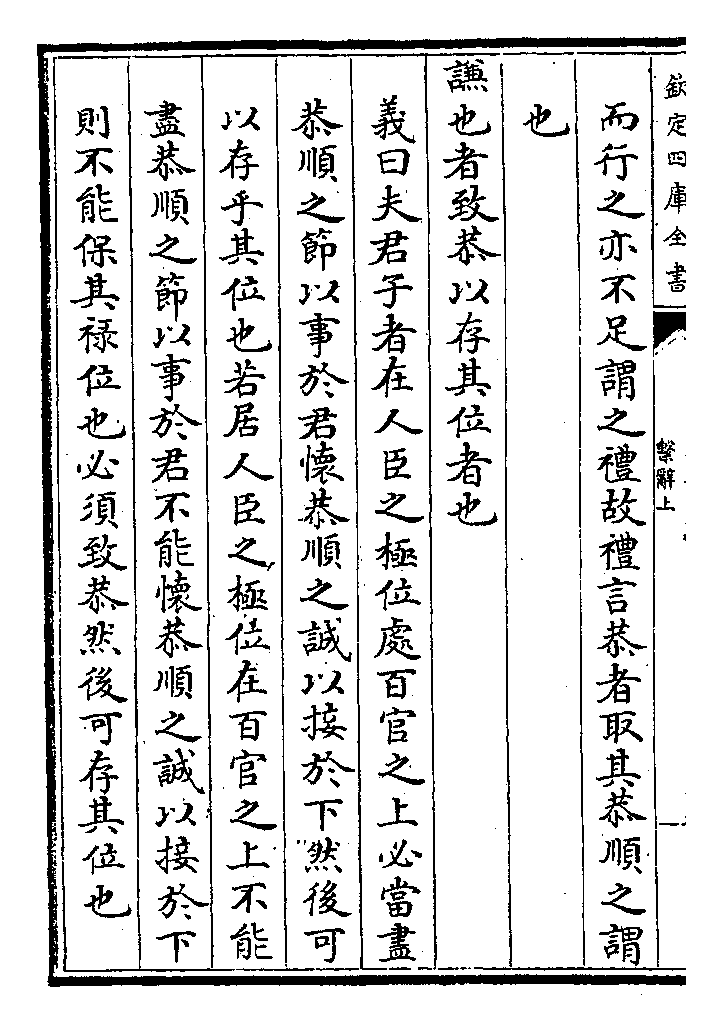 欽定四庫全書
繫辭上
而行之亦不足謂之禮故禮言恭者取其恭順之謂
也
謙也者致恭以存其位者也
義曰夫君子者在人臣之極位處百官之上必當盡
恭順之節以事於君懷恭順之誠以接於下然後可
以存乎其位也若居人臣之極位在百官之上不能
盡恭順之節以事於君不能懷恭順之誠以接於下
則不能保其禄位也必須致恭然後可存其位也